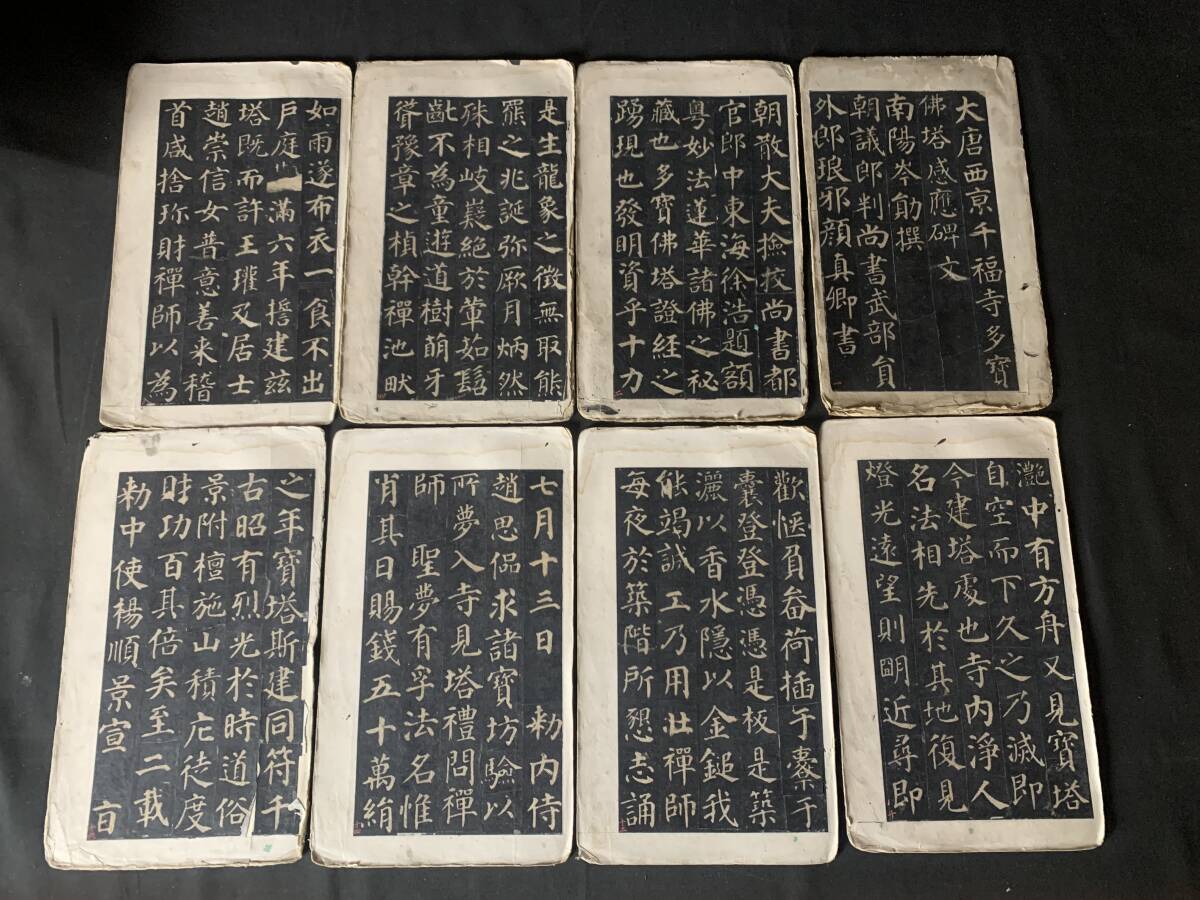 大唐西京千福寺多寶
佛塔感應碑文
南陽岑勛撰
朝議郎判尚書武部負
外郎琅邪顏真卿書
朝散大夫撿挍尚書都
官郎中東海徐浩題額
粵妙法蓮華諸佛之祕
藏也多寶佛塔證經之
踴現也發明資乎十力
是生龍象之徵無取熊
羆之兆誕弥厥月炳然
殊相岐嶷絕於葷茹髫
齔不為童遊道樹萌牙
聳豫章之楨幹禪池畎
如雨遂布衣一食不出
戶庭滿六年誓建茲
塔既而許王瓘及居士
趙崇信女普意善来稽
首咸捨珎財禪師以為
灩中有方舟又見寶塔
自空而下久之乃滅即
今建塔處也寺內淨人
名法相先於其地復見
燈光遠望則明近尋即
歡愜負畚荷插于橐于
囊登登憑憑是板是築
灑以香水隱以金鎚我
能竭誠工乃用壯禪師
每夜於築階所懇志誦
七月十三日 勅內侍
趙思偘求諸寶坊驗以
所夢入寺見塔禮問禪
師 聖夢有孚法名惟
肖其日賜錢五十萬絹
之年寶塔斯建同符千
古昭有烈光於時道俗
景附檀施山積庀徒度
財功百其倍矣至二載
勅中使楊順景宣 旨